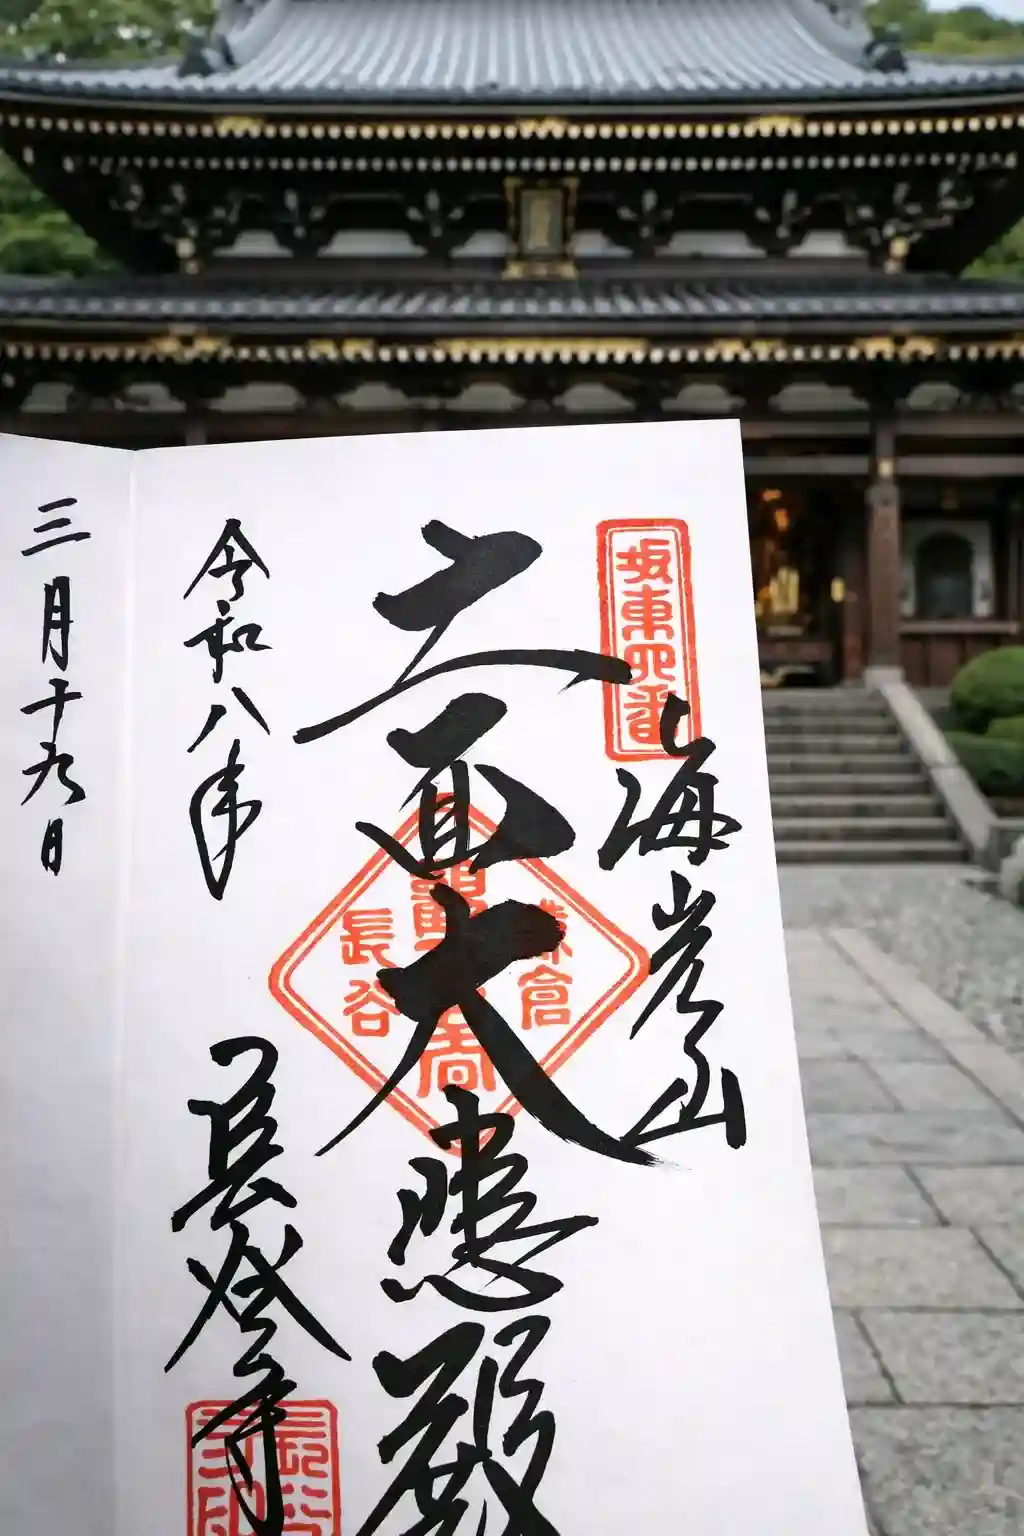 坂東四番
海光山
十一面大悲殿
鎌倉
長谷
長谷寺
令和八年
三月十九日